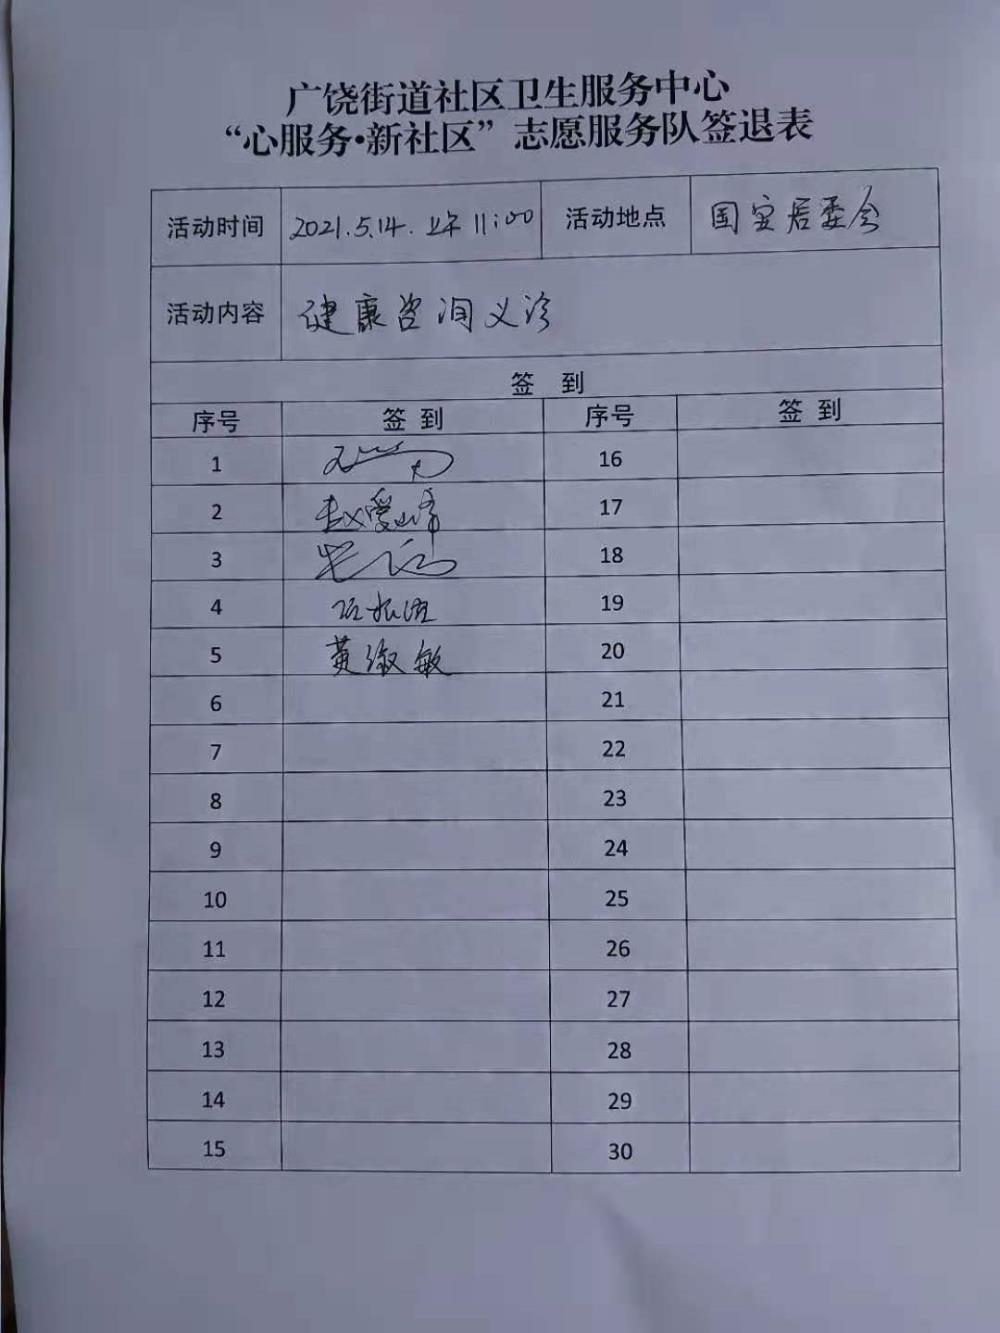 广饶街道社区卫生服务中心
“心服务·新社区”志愿服务队签退表
活动时间 2021.5.14. 上午 11:00 活动地点 国安居委会
活动内容 健康咨询义诊
签 到
序号 签 到 序号 签 到
1 16
2 赵爱峰 17
3 18
4 19
5 黄淑敏 20
6 21
7 22
8 23
9 24
10 25
11 26
12 27
13 28
14 29
15 30